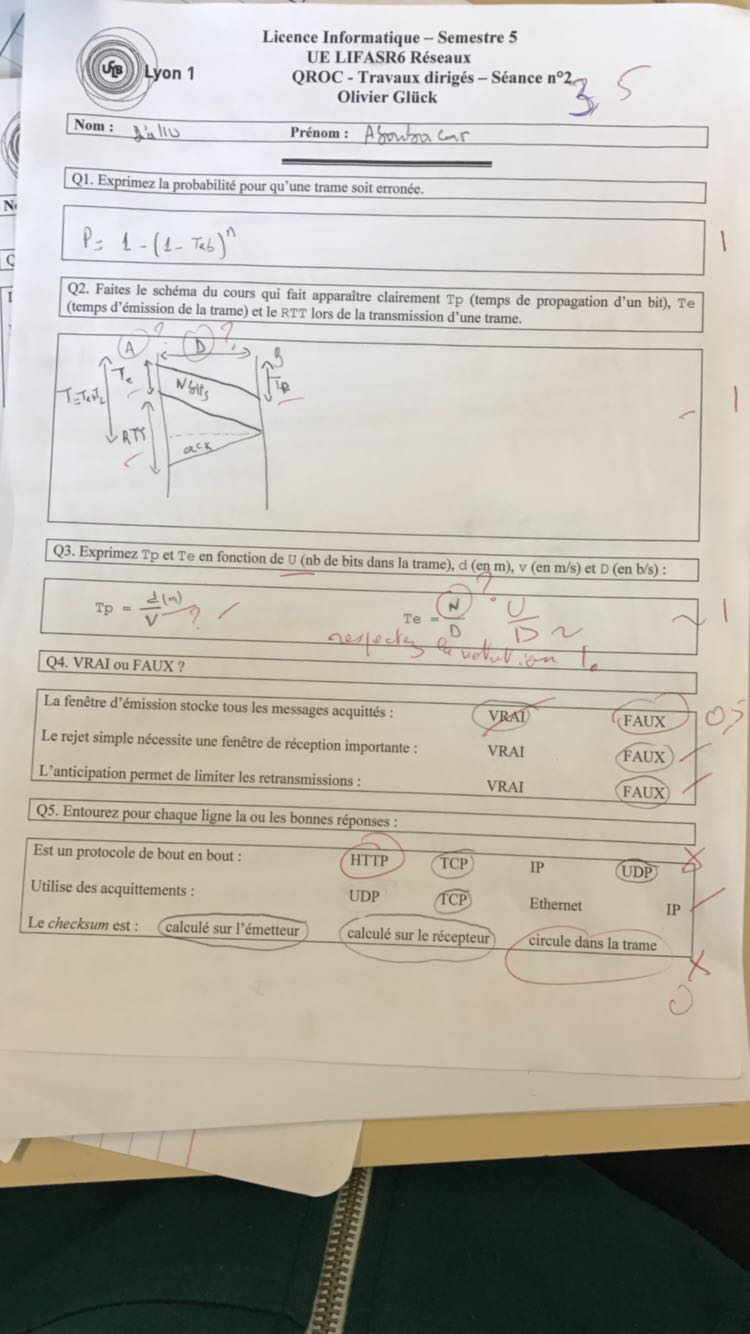 Licence Informatique – Semestre 5
UE LIFASR6 Réseaux
QROC - Travaux dirigés – Séance n°2
Olivier Glück
UCB Lyon 1
3,5
Nom : Diallo Prénom : Aboubacar
Q1. Exprimez la probabilité pour qu'une trame soit erronée.
P = 1 - (1 - Teb)^n
1
Q2. Faites le schéma du cours qui fait apparaître clairement Tp (temps de propagation d'un bit), Te
(temps d'émission de la trame) et le RTT lors de la transmission d'une trame.
A ? D ? B
Te N bits Tp
RTT ack
1
Q3. Exprimez Tp et Te en fonction de U (nb de bits dans la trame), d (en m), v (en m/s) et D (en b/s) :
Tp = d(m)/V ? Te = N/D ? U/D ~ 1
respectez la notation !
Q4. VRAI ou FAUX ?
La fenêtre d'émission stocke tous les messages acquittés : VRAI FAUX 0,5
Le rejet simple nécessite une fenêtre de réception importante : VRAI FAUX
L'anticipation permet de limiter les retransmissions : VRAI FAUX
Q5. Entourez pour chaque ligne la ou les bonnes réponses :
Est un protocole de bout en bout : HTTP TCP IP UDP
Utilise des acquittements : UDP TCP Ethernet IP
Le checksum est : calculé sur l'émetteur calculé sur le récepteur circule dans la trame
0